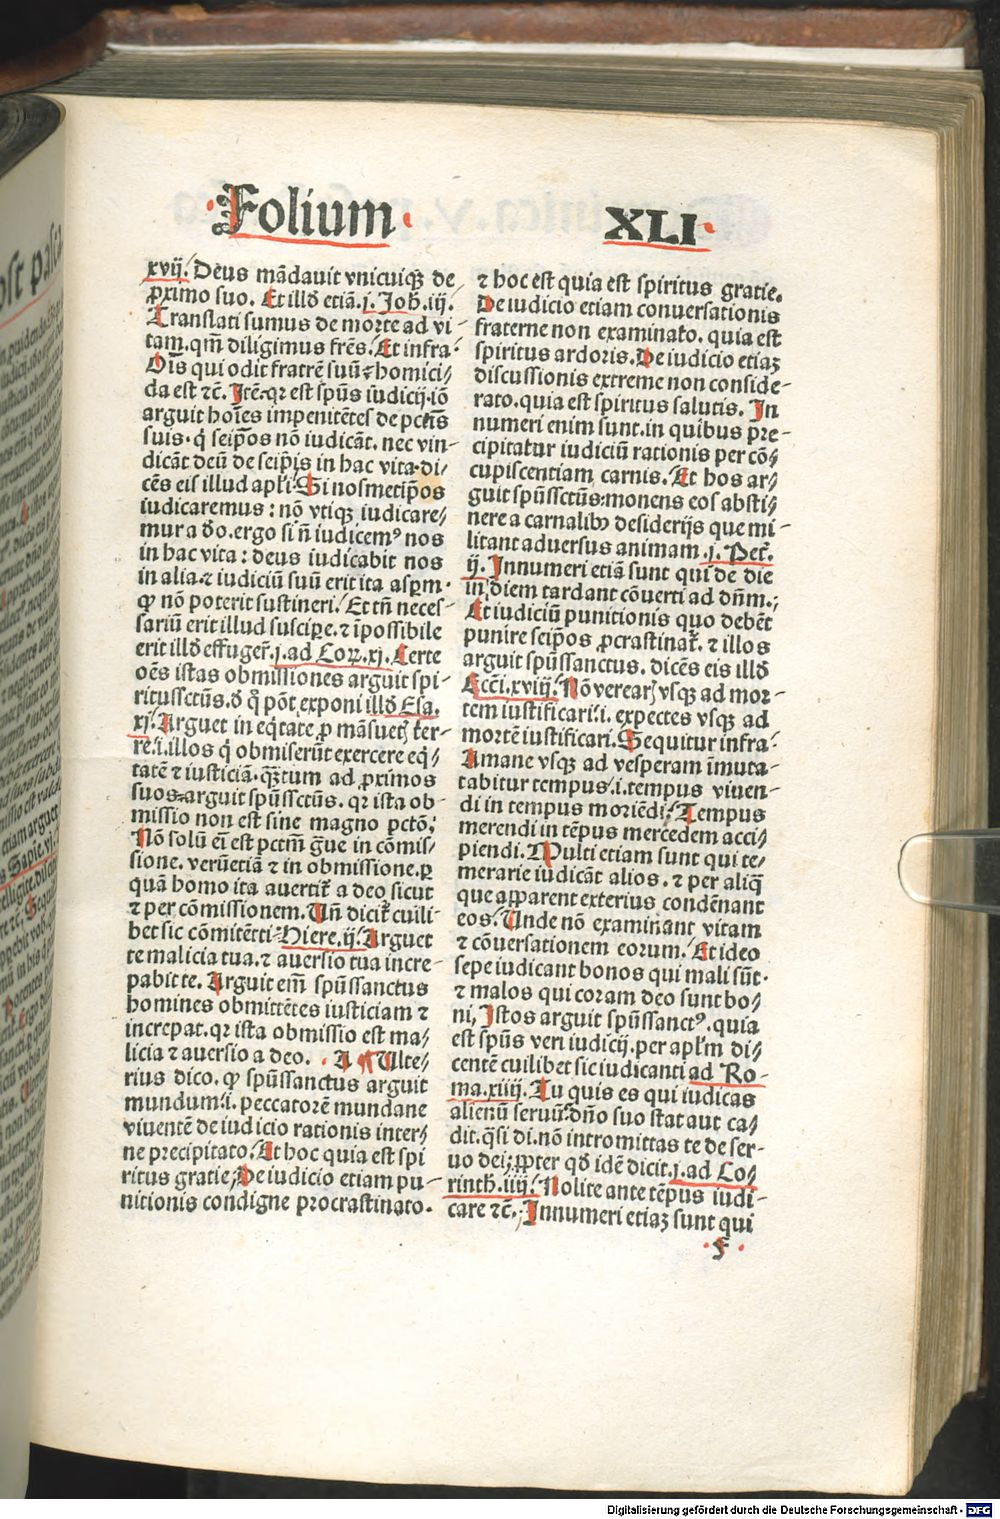 Folium XLI
xvij. Deus mādauit vnicuiqꝫ de
ꝓximo suo. Et illđ etiā.j. Joħ.iij.
Translati sumus de morte ad vi-
tam.qm̄ diligimus frēs. Et infra.
Oīs qui odit fratrē suū: homici/
da est ⁊c̄. Itē. qꝛ est spūs iudicij.iō
arguit hoīes impenitētes de pctīs
suis. q̇ seip̄os nō iudicāt. nec vin-
dicāt deū de seip̄is in hac vita.di/
cēs eis illud apl̄i. Si nosmetip̄os
iudicaremus: nō vtiqꝫ iudicare/
mur a đo.ergo si n̄ iudicemꝰ nos
in hac vita: deus iudicabit nos
in alia.⁊ iudiciū suū erit ita aspm̄.
ꝙ nō poterit sustineri. Et tn̄ neces-
sariū erit illud suscipe̱.⁊ īpossibile
erit illđ effuger̄.j.ad Coꝝ.xj. Certe
oēs istas obmissiones arguit spi-
ritussctūs.đ q̊ pōt exponi illđ Esa.
xj. Arguet in eq̇tate ꝓ māsuetꝭ ter-
re.i.illos q̇ obmiserūt exercere eq̇/
tatē ⁊ iusticiā.qꝫtum ad ꝓximos
suos. arguit spūssctūs. qꝛ ista ob-
missio non est sine magno pctō.
Nō solū em̄ est pctm̄ gue in cōmis/
sione. verūetiā ⁊ in obmissione.ꝑ
quā homo ita auertit̄ a deo sicut
⁊ per cōmissionem. Un̄ dicit̄ cuili-
bet sic cōmitēti. Hiere.ij. Arguet
te malicia tua.⁊ auersio tua incre-
pabit te. Arguit em̄ spūssanctus
homines obmittētes iusticiam ⁊
increpat. qꝛ ista obmissio est ma/
licia ⁊ auersio a deo. . A ¶ Ulte/
rius dico. ꝙ spūssanctus arguit
mundum.i. peccatorē mundane
viuentē de iudicio rationis inter/
ne precipitato. Et hoc quia est spi
ritus gratie. De iudicio etiam pu-
nitionis condigne procrastinato.
⁊ hoc est quia est spiritus gratie.
De iudicio etiam conuersationis
fraterne non examinato. quia est
spiritus ardoris. De iudicio etiaꝫ
discussionis extreme non conside-
rato.quia est spiritus salutis. In
numeri enim sunt.in quibus pre-
cipitatur iudiciū rationis per cō/
cupiscentiam carnis. Et hos ar/
guit spūssctūs: monens eos absti/
nere a carnalibꝰ desiderijs que mi-
litant aduersus animam.j. Pet̄.
ij. Innumeri etiā sunt qui de die
in diem tardant cōuerti ad dn̄m.
Et iudiciū punitionis quo debēt
punire seip̄os ꝓcrastināt. ⁊ illos
arguit spūssanctus. dicēs eis illđ
Eccī.xviij. Nō verearꝭ vsqꝫ ad mor-
tem iustificari.i. expectes vsqꝫ ad
mortē iustificari. Sequitur infra.
Amane vsqꝫ ad vesperam īmuta-
tabitur tempus.i.tempus viuen-
di in tempus moriēdi. Tempus
merendi in tēpus mercedem acci/
piendi. Multi etiam sunt qui te/
merarie iudicāt alios. ⁊ per aliq̄
que apparent exterius condēnant
eos. Unde nō examinant vitam
⁊ cōuersationem eorum. Et ideo
sepe iudicant bonos qui mali sūt.
⁊ malos qui coram deo sunt bo/
ni, Istos arguit spūssanctꝰ. quia
est spūs veri iudicij.per apl̄m di/
centē cuilibet sic iudicanti ad Ro-
ma.xiiij. Tu quis es qui iudicas
alienū seruū. dn̄o suo stat aut ca/
dit.q̄si di.nō intromittas te de ser-
uo dei. ꝓpter qđ idē dicit.j.ad Co/
rinth.iiij. Nolite ante tēpus iudi-
care ⁊c̄. Innumeri etiaꝫ sunt qui